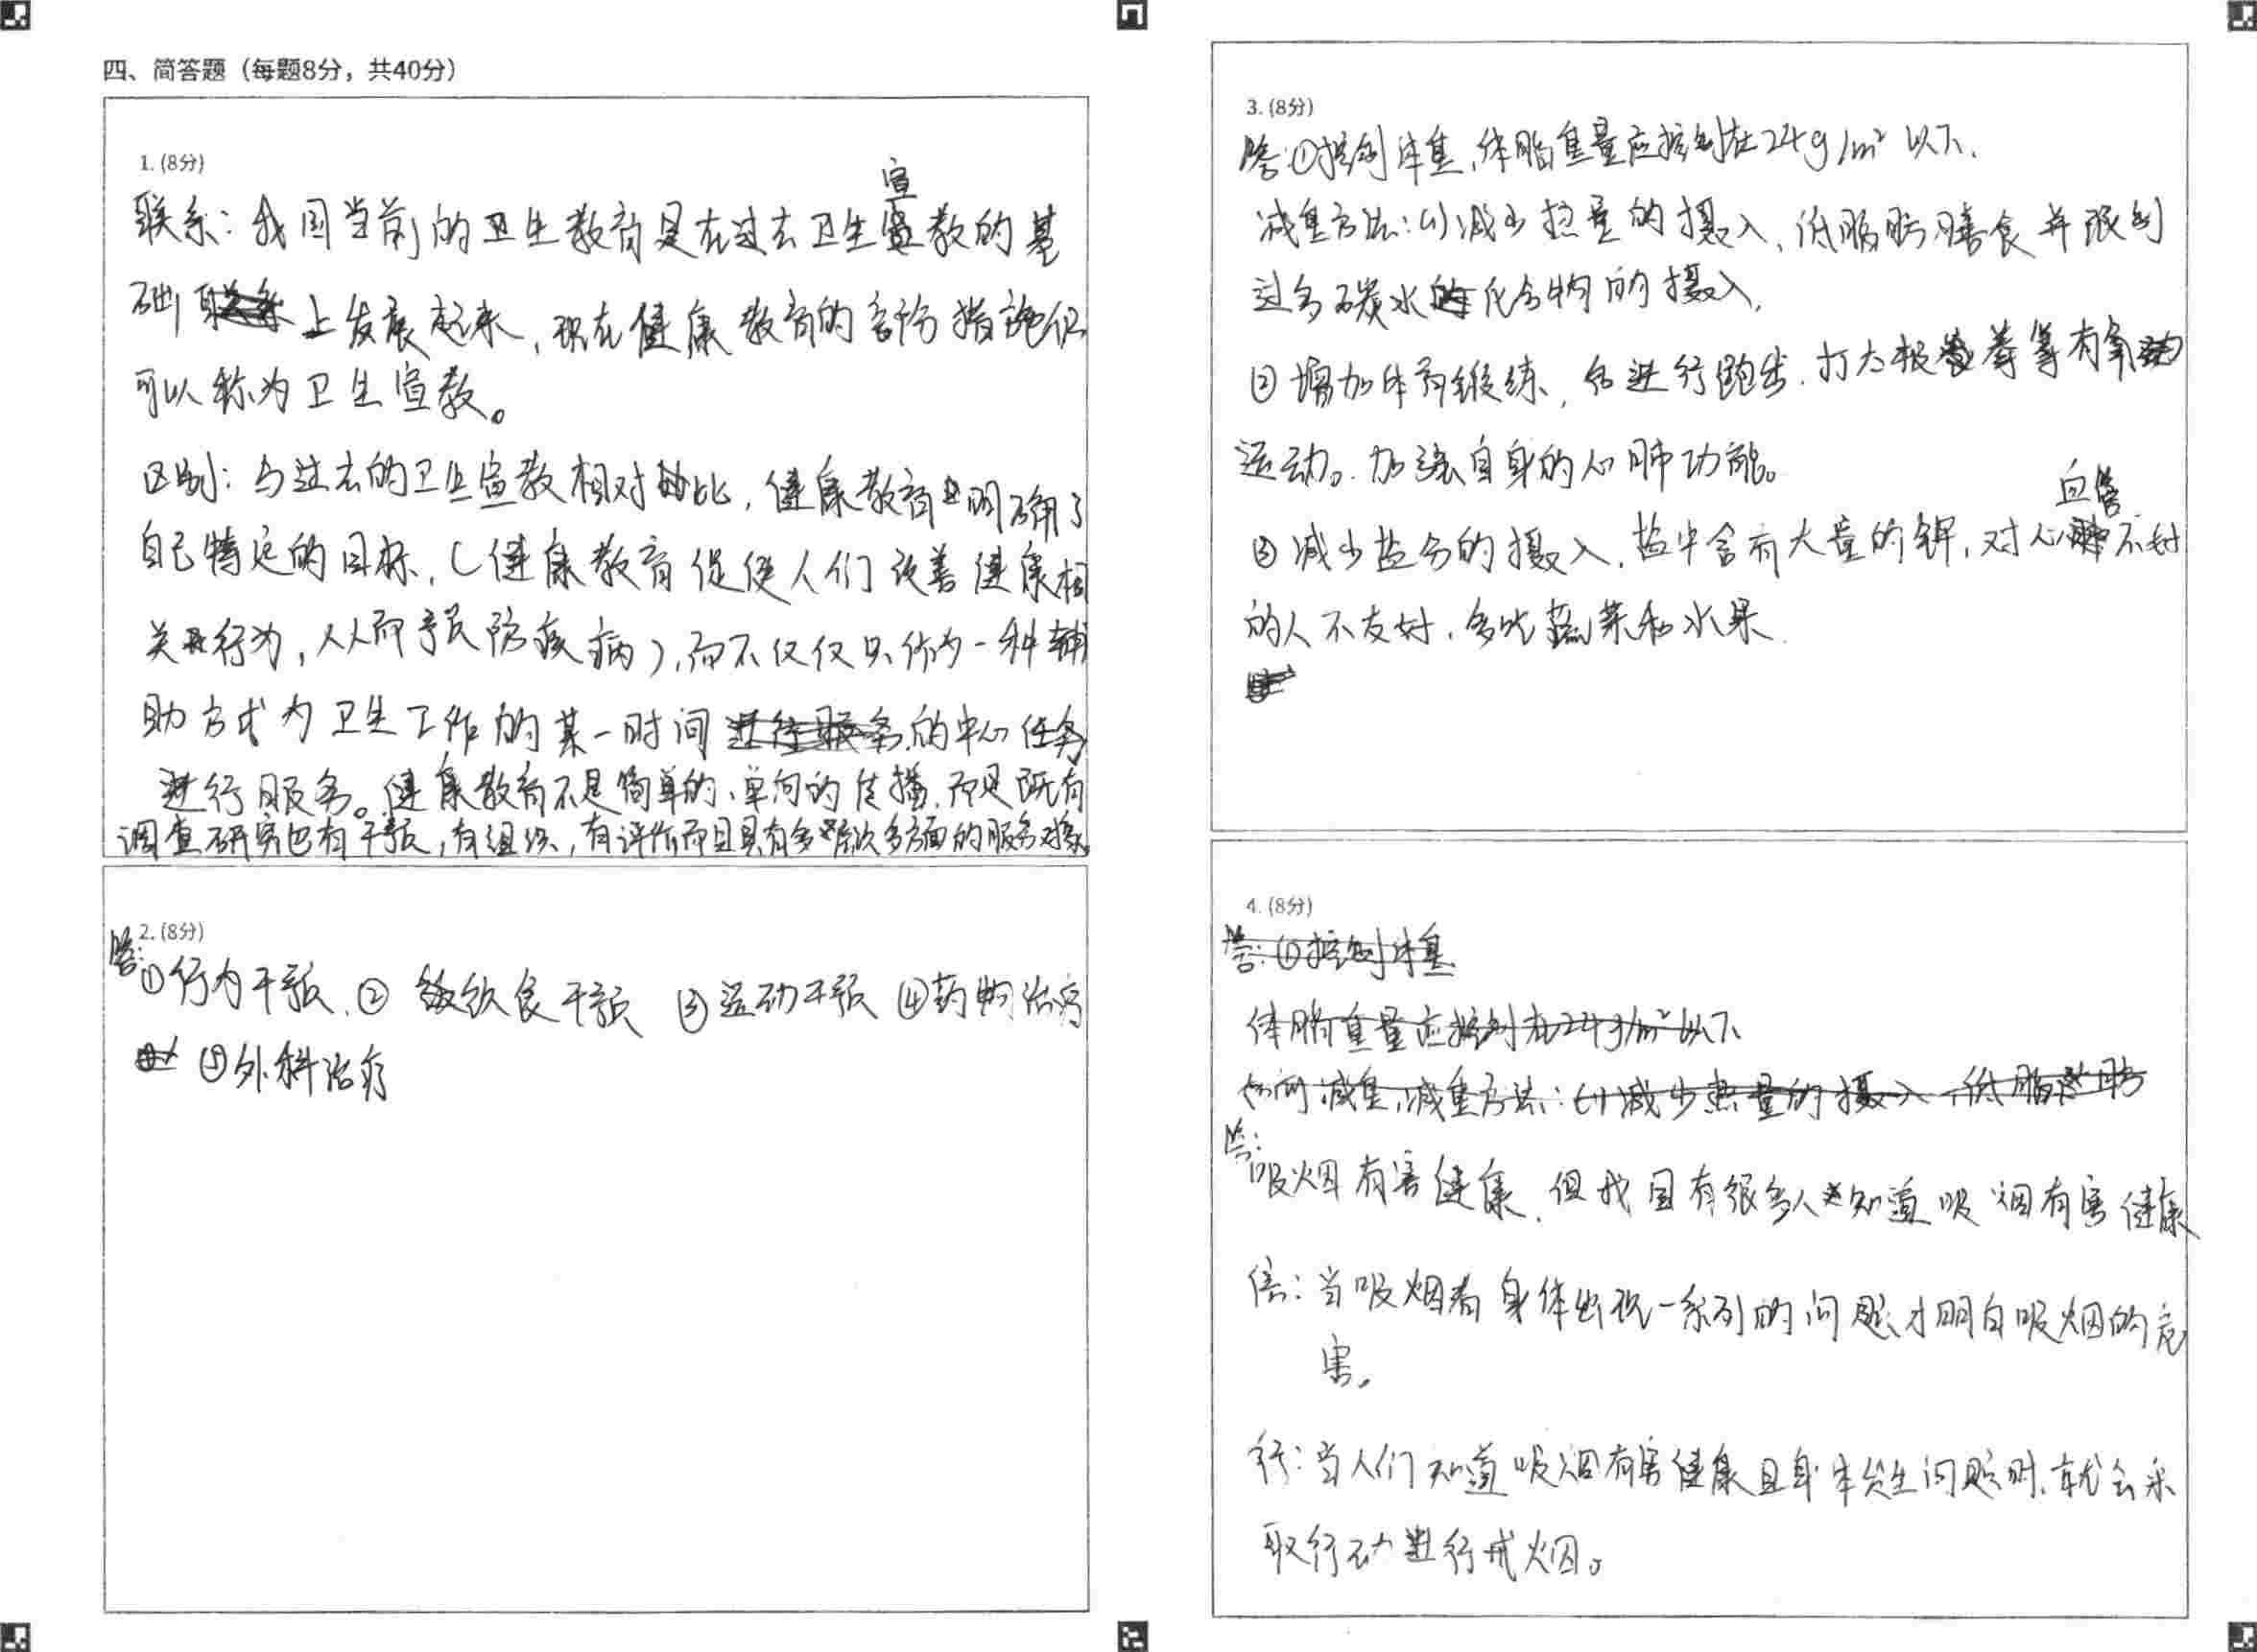 四、简答题（每题8分，共40分）
1. (8分)
宣
联系：我国当前的卫生教育是在过去卫生宣教的基
础上发展起来，现在健康教育的部份措施仍
可以称为卫生宣教。
区别：与过去的卫生宣教相对比，健康教育明确了
自己特定的目标，（健康教育促使人们改善健康相
关行为，从而预防疾病），而不仅仅只作为一种辅
助方式为卫生工作的某一时间的中心任务
进行服务。健康教育不是简单的、单向的传播，而是既有
调查研究也有干预，有组织，有评价而且具有多层次多方面的服务对象。
2. (8分)
答：
①行为干预、② 饮食干预 ③运动干预 ④药物治疗
⑤外科治疗
3. (8分)
答：①控制体重，体脂重量应控制在24g/m² 以下，
减重方法：(1)减少热量的摄入，低脂肪膳食并限制
过多碳水化合物的摄入，
② 增加体育锻练，如进行跑步、打太极拳等有氧
运动。加强自身的心肺功能。
血管
③减少盐分的摄入，盐中含有大量的钾，对心不好
的人不友好，多吃蔬菜和水果.
4. (8分)
答：①控制体重
体脂重量应控制在24g/m²以下
如何减重，减重方法：(1)减少热量的摄入，低脂肪
答：
吸烟有害健康，但我国有很多人知道吸烟有害健康
信：当吸烟者身体出现一系列的问题，才明白吸烟的危
害。
行：当人们知道吸烟有害健康且身体发生问题时，就会采
取行动进行戒烟。